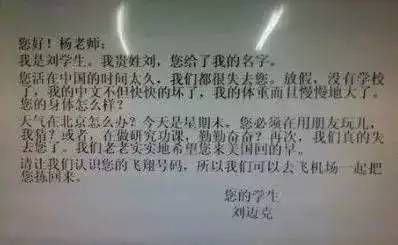 您好！杨老师：
我是刘学生。我贵姓刘，您给了我的名字。
您活在中国的时间太久，我们都很失去您。放假，没有学校
了，我的中文不但快快的坏了，我的体重而且慢慢地大了。
您的身体怎么样？
天气在北京怎么办？今天是星期末，您必须在用朋友玩儿，
我猜？或者，在做研究功课，勤勤奋奋？再次，我们真的失
去您了。我们老老实实地希望您来美国回的早。
请让我们认识您的飞翔号码，所以我们可以去飞机场一起把
您拣回来。
您的学生
刘迈克